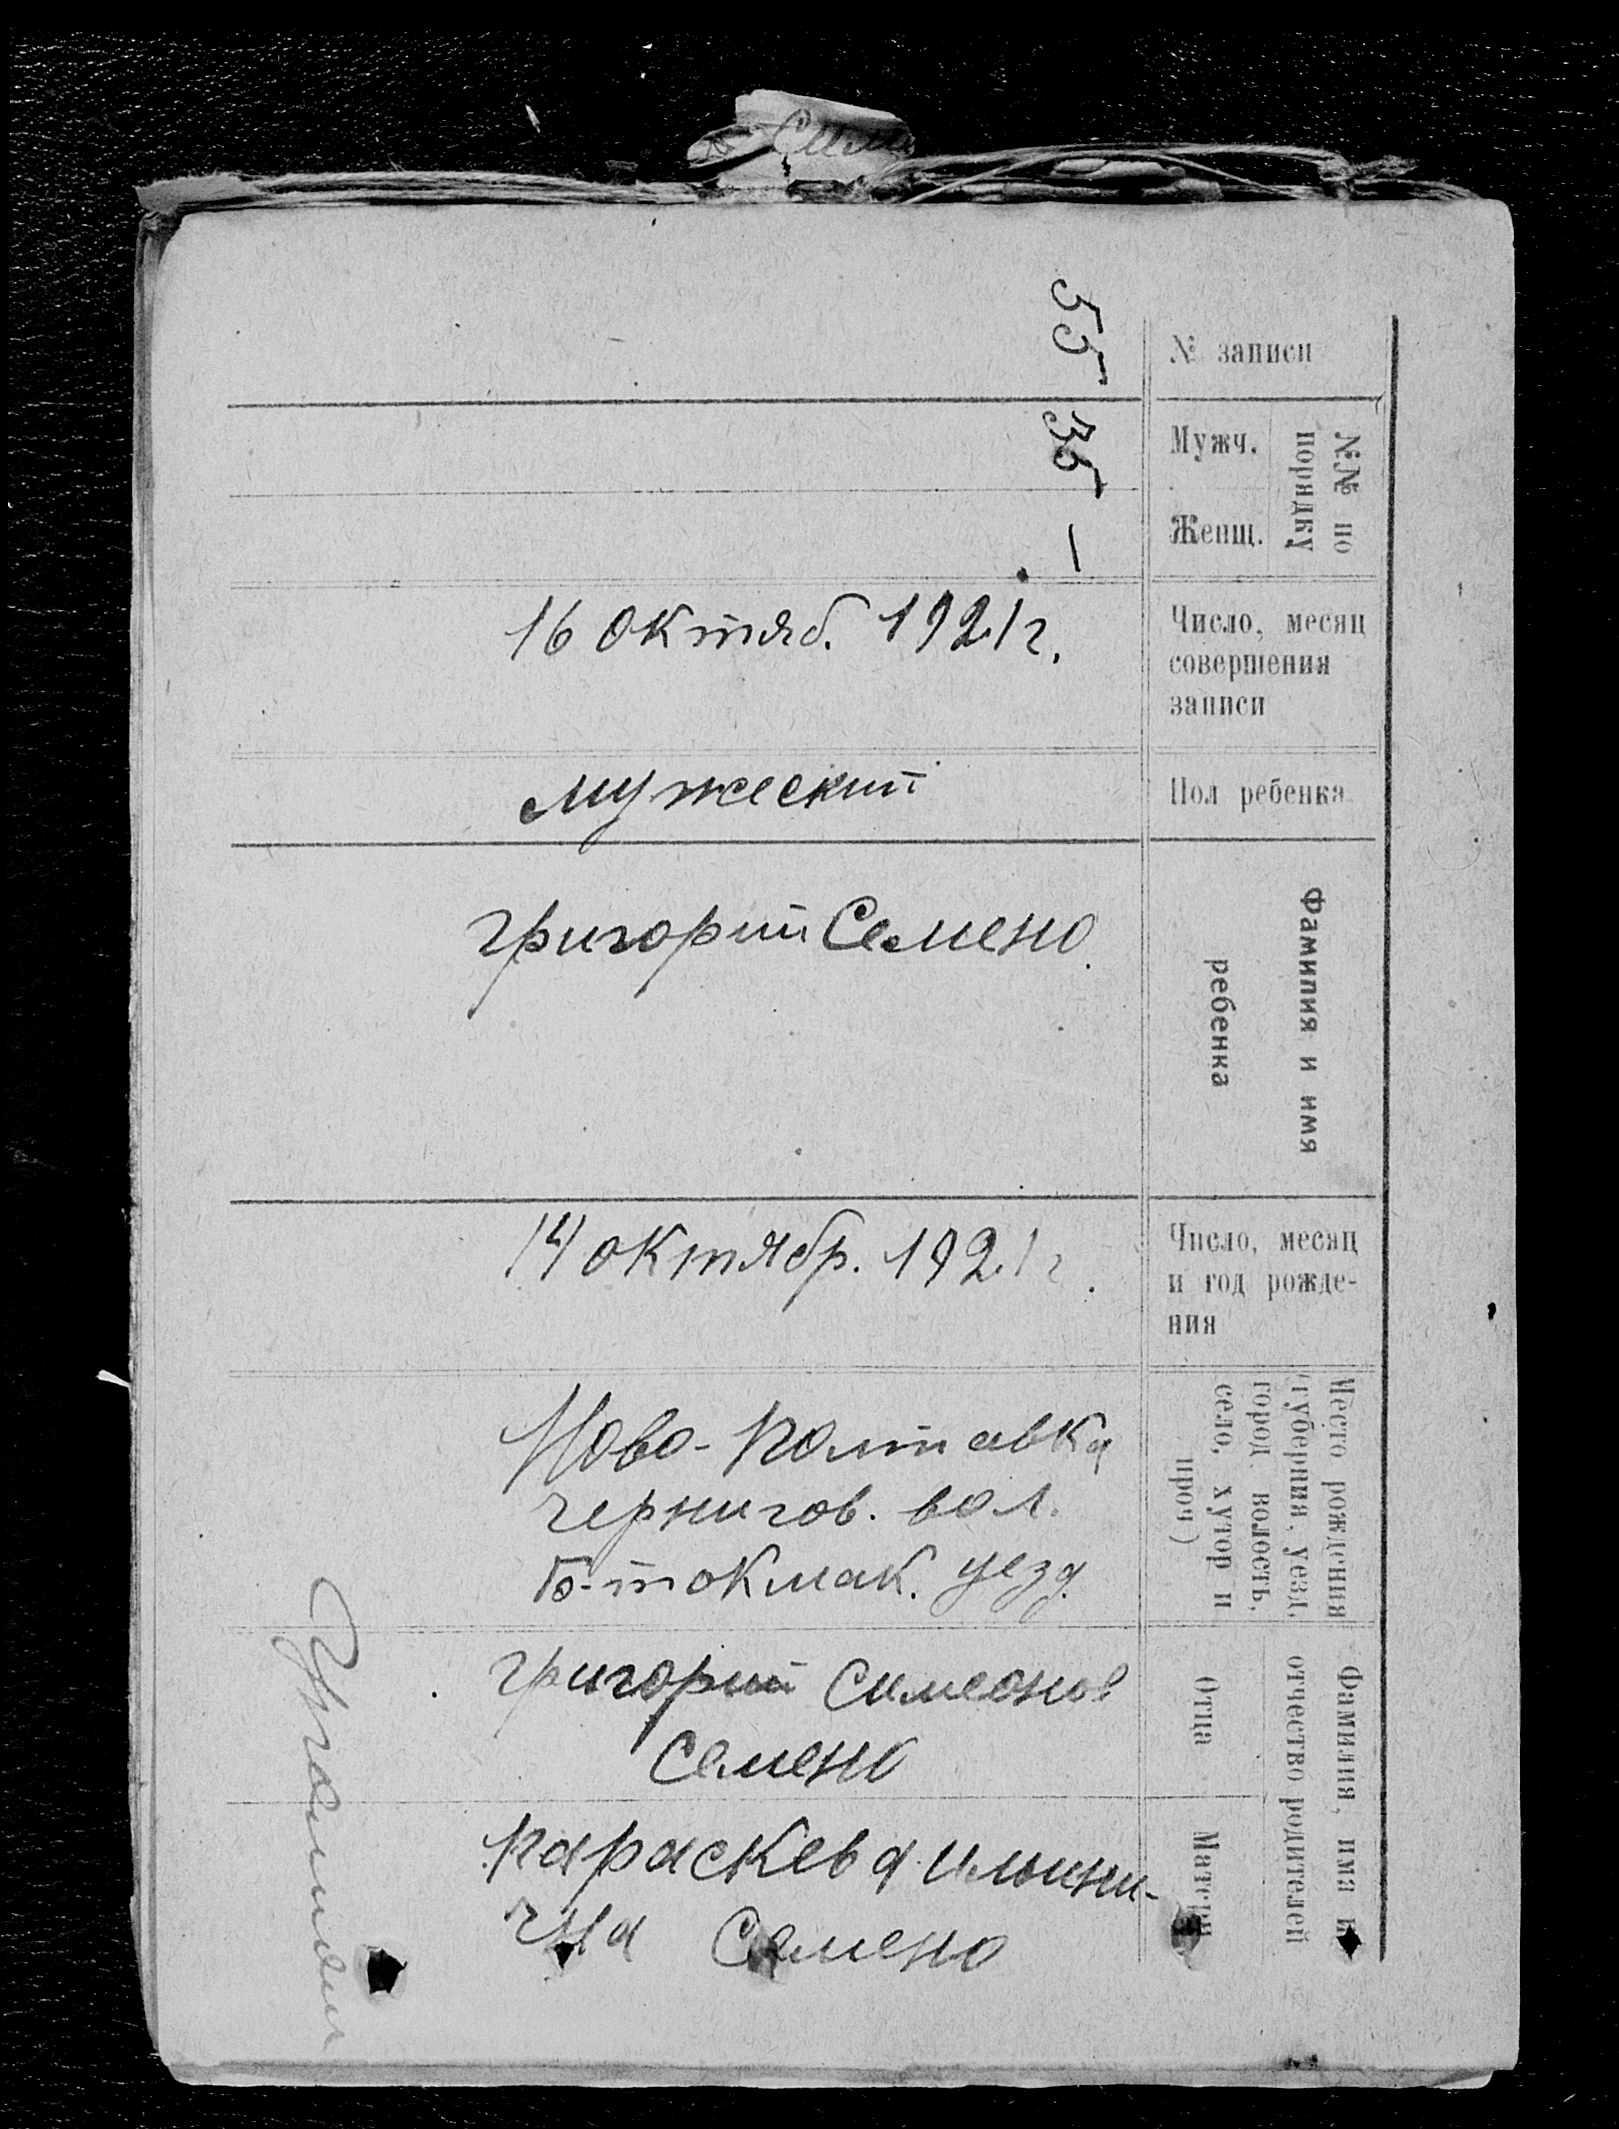 № записи
55
№№ по
порядку
Мужч.
35
Женщ.
—
Число, месяц
совершения
записи
16 октяб. 1921 г.
Пол ребенка
мужеский
Фамилия и имя
ребенка
григорий Семено
Число, месяц
и год рожде-
ния
14 октябр. 1921 г.
Место рождения
(губерния, уезд,
город волость,
село, хутор и
проч)
Ново-Полтавка
чернигов. вол.
Б-токмак. уезд.
Фамилия, имя и
отчество родителей
Отца
григорий Симеонов
Семено
Матери
параскева ильини-
чна Семено